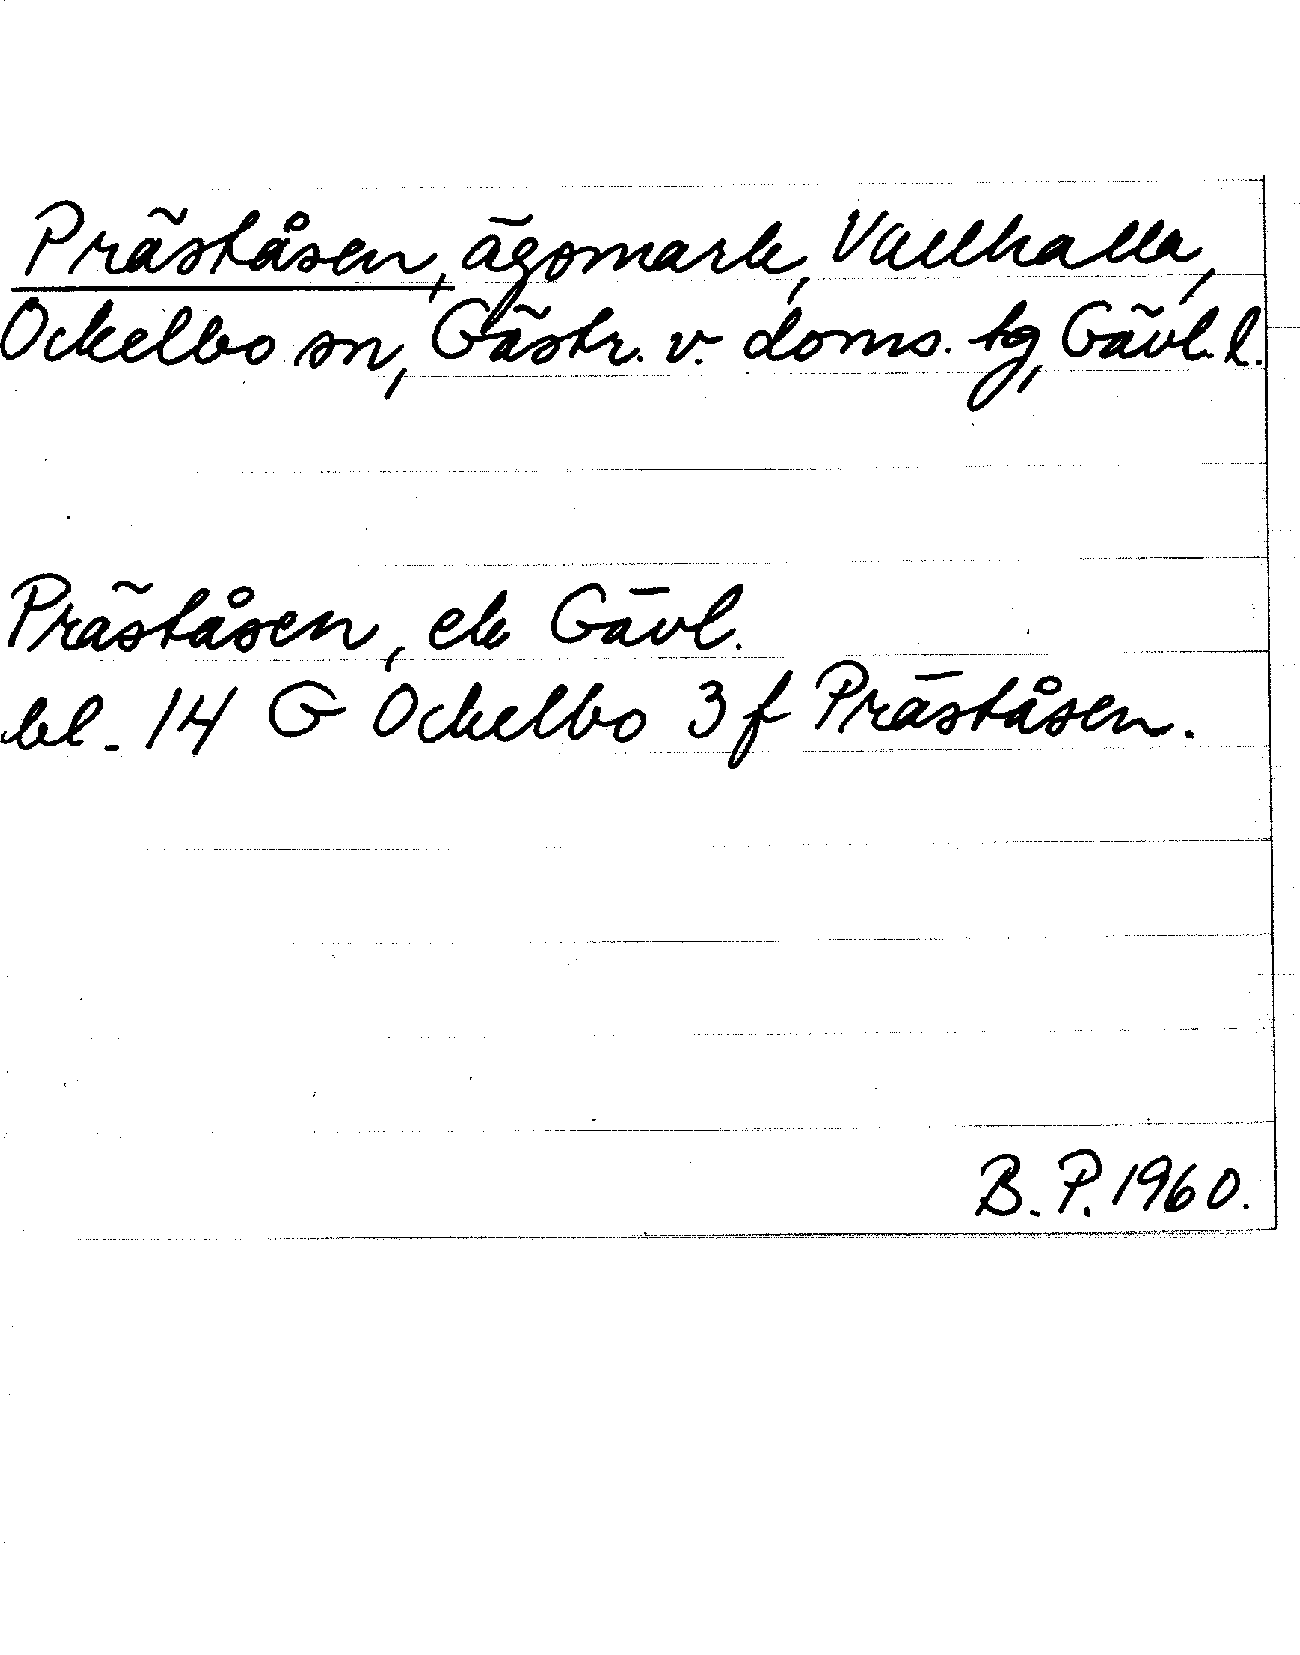 Präståsen, ägomark, Vallhalla,
Ockelbo sn, Gästr. v. doms. tg, Gävl. l.
Präståsen, ek Gävl.
bl. 14 G Ockelbo 3 f Präståsen.
B. P. 1960.